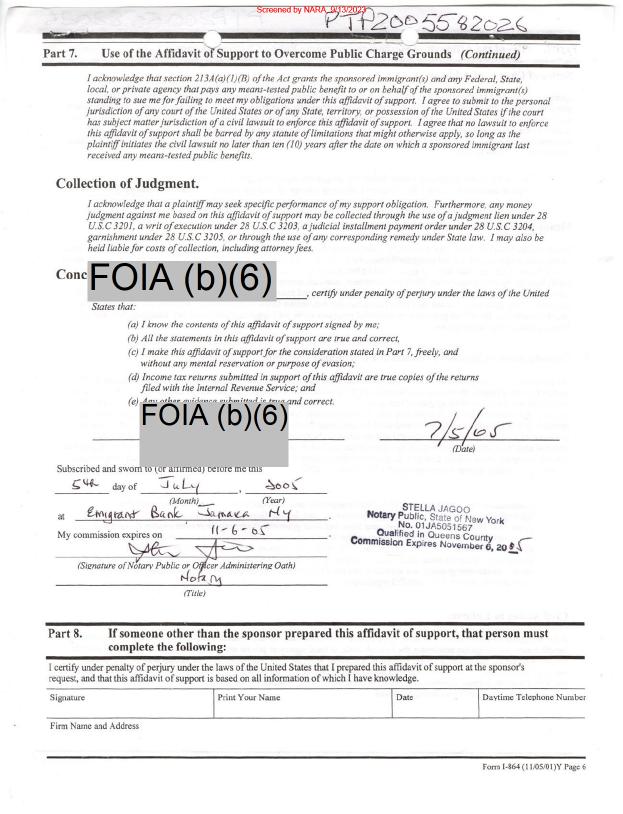 Screened by NARA, 9/13/2023
PTP2005582026
Part 7. Use of the Affidavit of Support to Overcome Public Charge Grounds (Continued)
I acknowledge that section 213A(a)(1)(B) of the Act grants the sponsored immigrant(s) and any Federal, State,
local, or private agency that pays any means-tested public benefit to or on behalf of the sponsored immigrant(s)
standing to sue me for failing to meet my obligations under this affidavit of support. I agree to submit to the personal
jurisdiction of any court of the United States or of any State, territory, or possession of the United States if the court
has subject matter jurisdiction of a civil lawsuit to enforce this affidavit of support. I agree that no lawsuit to enforce
this affidavit of support shall be barred by any statute of limitations that might otherwise apply, so long as the
plaintiff initiates the civil lawsuit no later than ten (10) years after the date on which a sponsored immigrant last
received any means-tested public benefits.
Collection of Judgment.
I acknowledge that a plaintiff may seek specific performance of my support obligation. Furthermore, any money
judgment against me based on this affidavit of support may be collected through the use of a judgment lien under 28
U.S.C 3201, a writ of execution under 28 U.S.C 3203, a judicial installment payment order under 28 U.S.C 3204,
garnishment under 28 U.S.C 3205, or through the use of any corresponding remedy under State law. I may also be
held liable for costs of collection, including attorney fees.
Conc FOIA (b)(6)
, certify under penalty of perjury under the laws of the United
States that:
(a) I know the contents of this affidavit of support signed by me;
(b) All the statements in this affidavit of support are true and correct,
(c) I make this affidavit of support for the consideration stated in Part 7, freely, and
without any mental reservation or purpose of evasion;
(d) Income tax returns submitted in support of this affidavit are true copies of the returns
filed with the Internal Revenue Service; and
(e) Any other evidence submitted is true and correct.
FOIA (b)(6)
7/5/05
(Date)
Subscribed and sworn to (or affirmed) before me this
5th day of July, 2005
(Month) (Year)
at Emigrant Bank Jamaica NY.
My commission expires on 11-6-05.
(Signature of Notary Public or Officer Administering Oath)
Notary
(Title)
STELLA JAGOO
Notary Public, State of New York
No. 01JA5051567
Qualified in Queens County
Commission Expires November 6, 2005
Part 8. If someone other than the sponsor prepared this affidavit of support, that person must
complete the following:
I certify under penalty of perjury under the laws of the United States that I prepared this affidavit of support at the sponsor's
request, and that this affidavit of support is based on all information of which I have knowledge.
Signature Print Your Name Date Daytime Telephone Number
Firm Name and Address
Form I-864 (11/05/01)Y Page 6